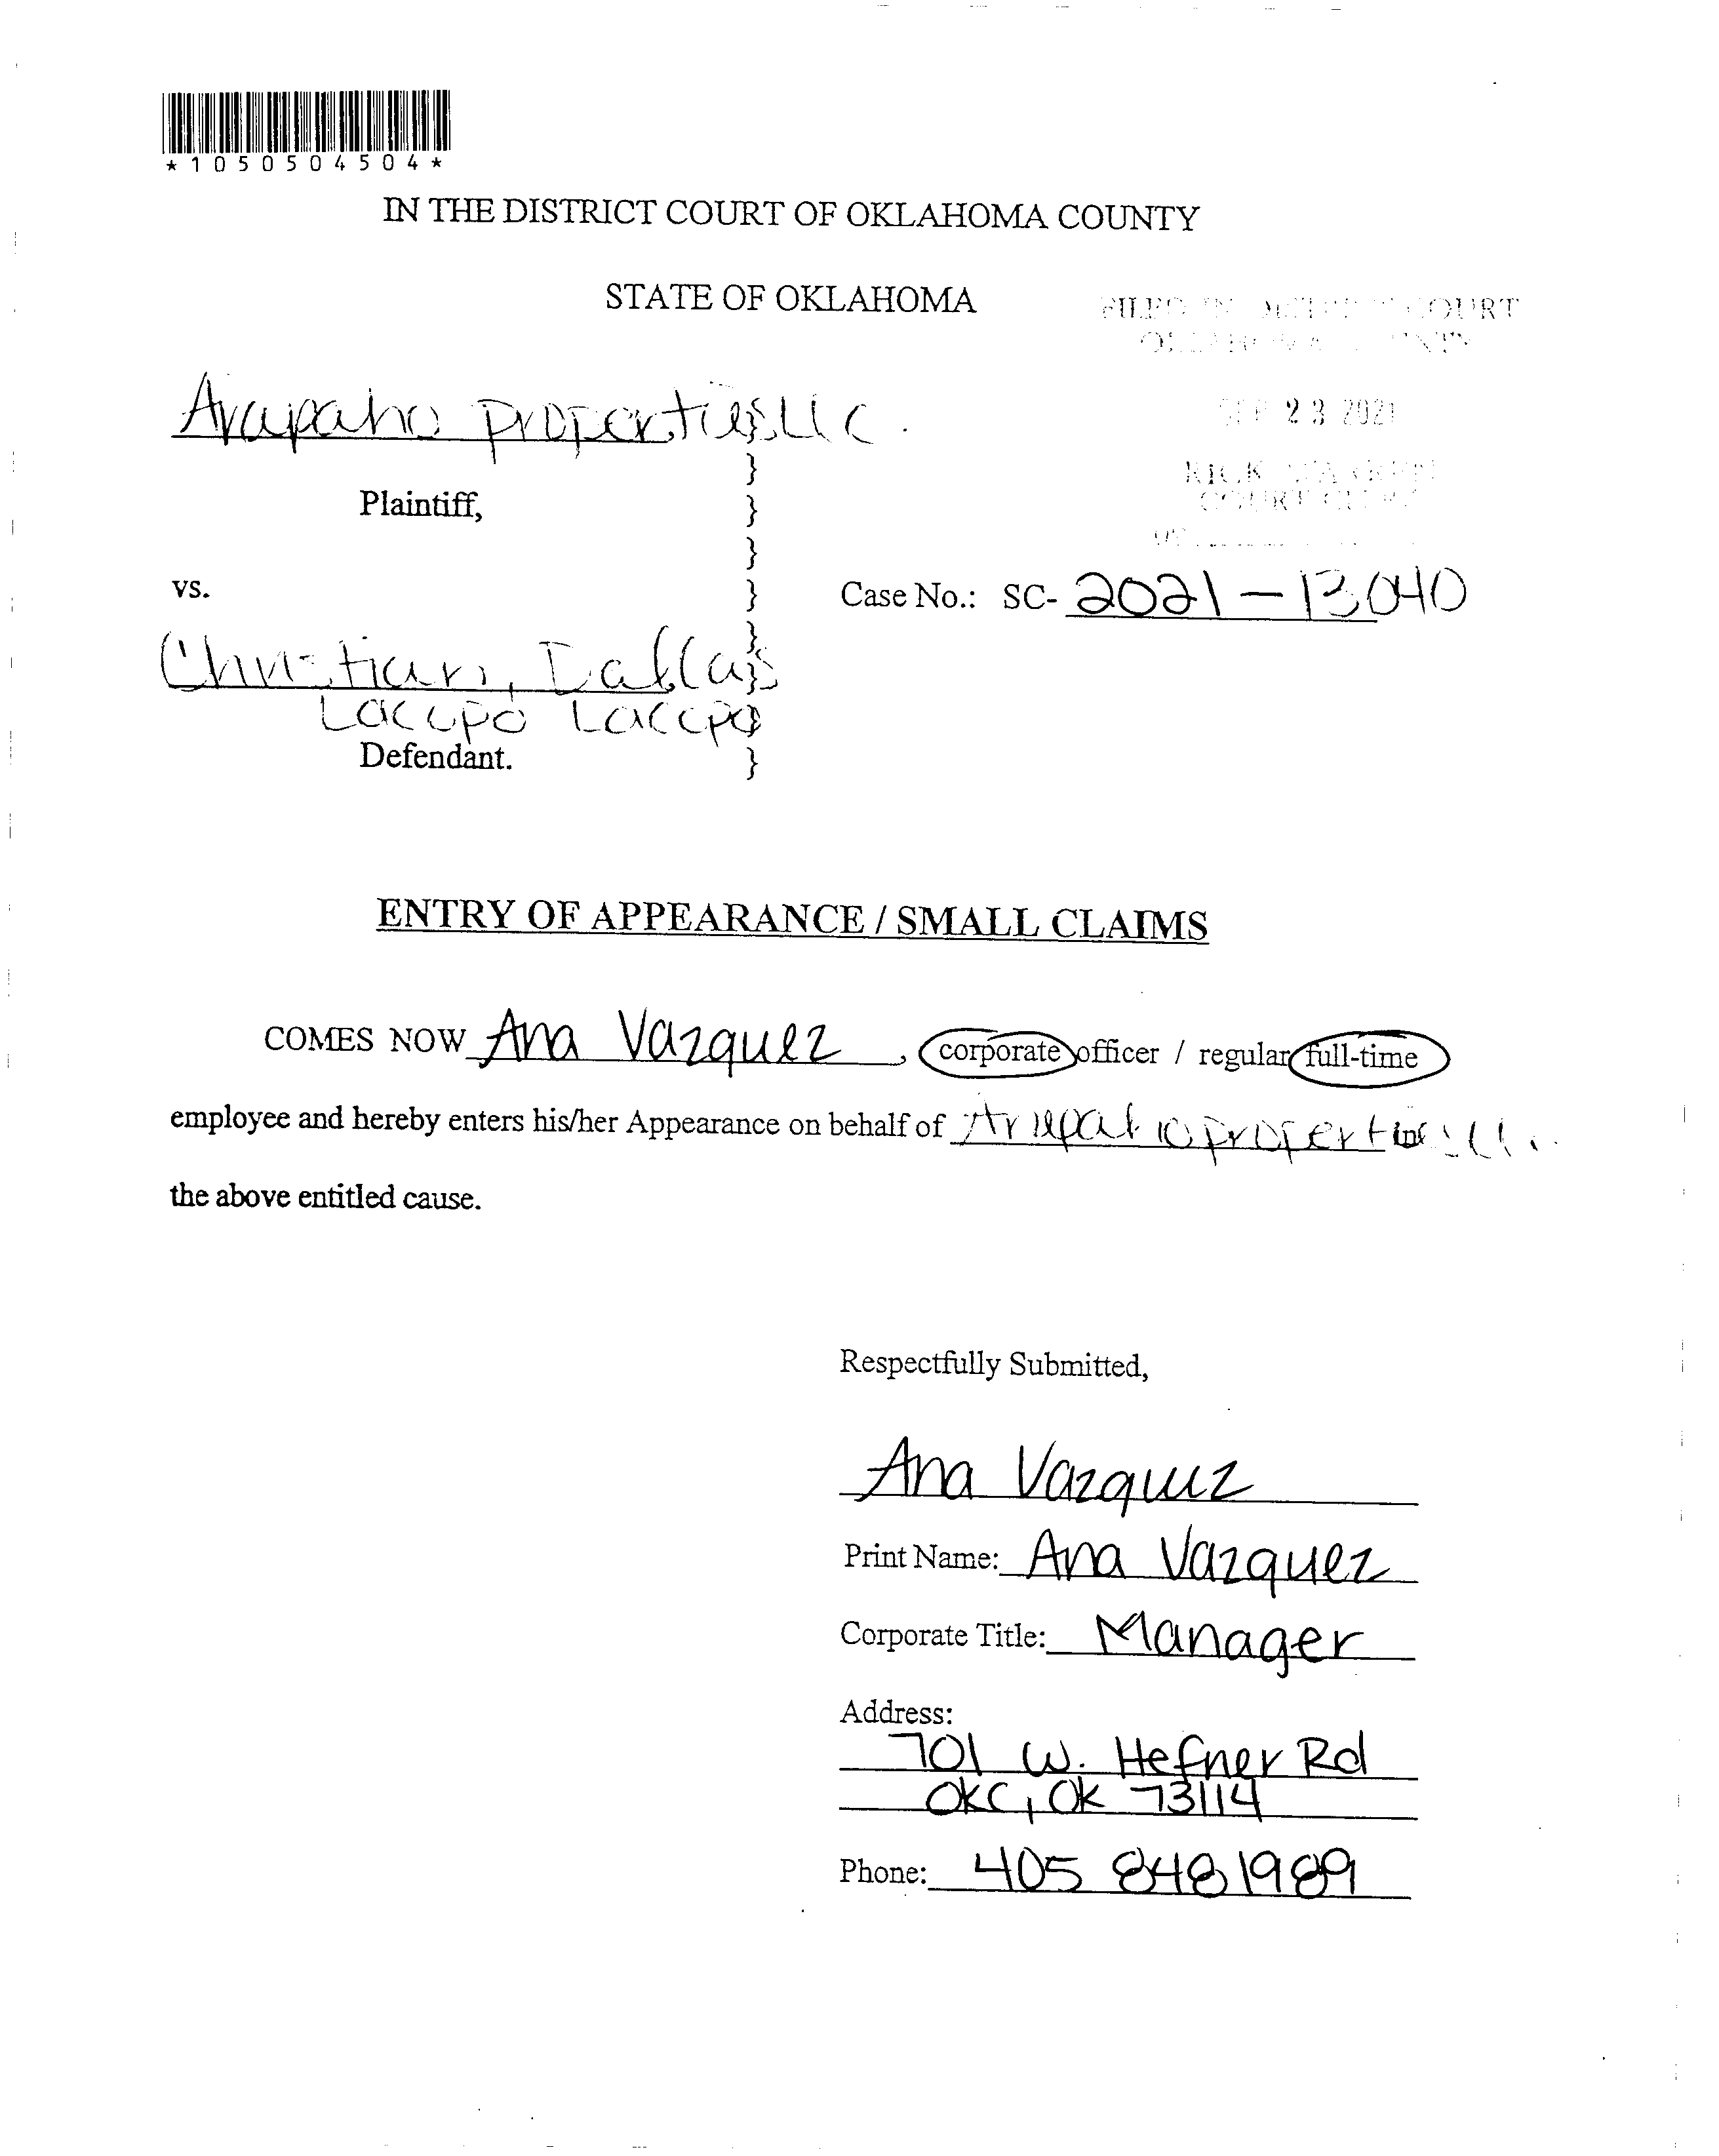 *1050504504*
IN THE DISTRICT COURT OF OKLAHOMA COUNTY
STATE OF OKLAHOMA
COURT
23 2021
RICK
COURT
Arapaho properties llc.
}
Plaintiff,
}
}
vs.
}
Case No.: SC- 2021-13040
}
Christian, Dallas
Defendant.
}
ENTRY OF APPEARANCE / SMALL CLAIMS
COMES NOW Ana Vazquez, corporate officer / regular full-time
employee and hereby enters his/her Appearance on behalf of properties
the above entitled cause.
Respectfully Submitted,
Ana Vazquez
Print Name: Ana Vazquez
Corporate Title: Manager
Address:
701 W. Hefner Rd
OKC, OK 73114
Phone: 405 848 1989